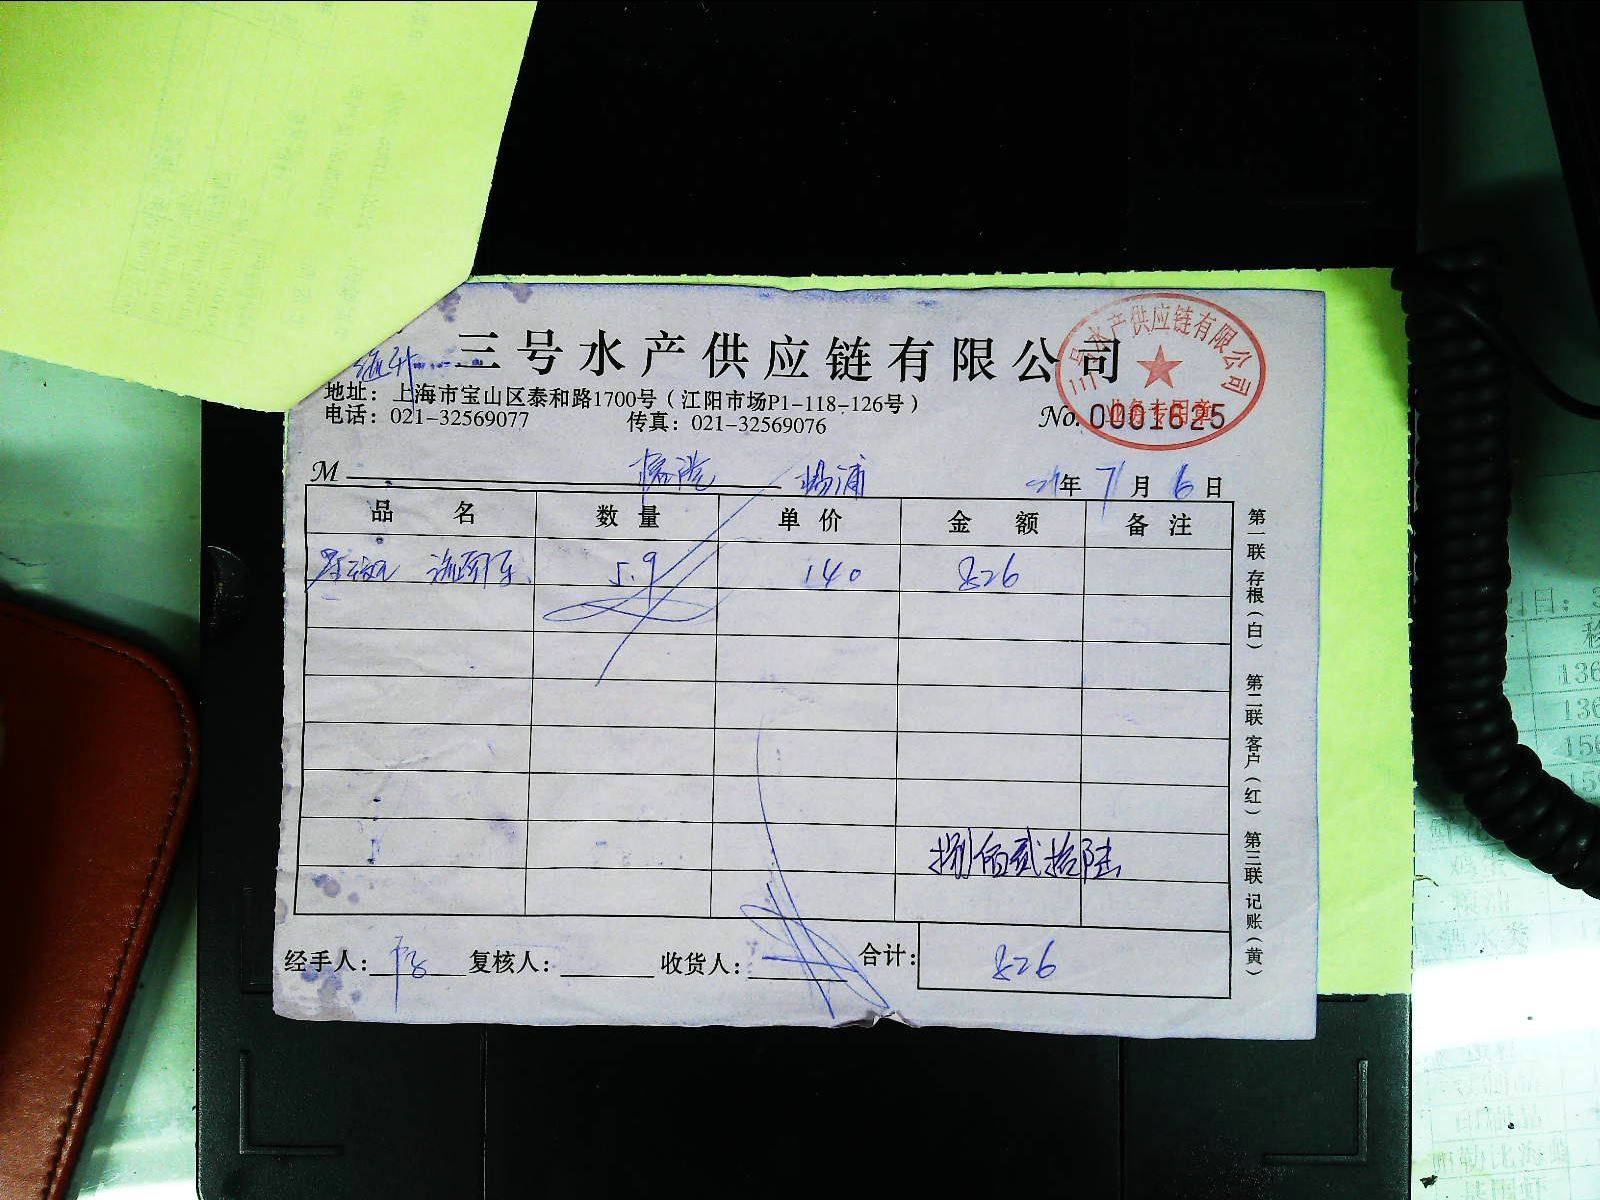 三号水产供应链有限公司
地址：上海市宝山区泰和路1700号（江阳市场P1-118-126号）
电话：021-32569077 传真：021-32569076
No. 0001625
三号水产供应链有限公司
业务专用章
M 杨浦 21年7月6日
品名 数量 单价 金额 备注
5.9 140 826
捌佰贰拾陆
经手人： 复核人： 收货人： 合计： 826
第一联 存根（白） 第二联 客户（红） 第三联 记账（黄）